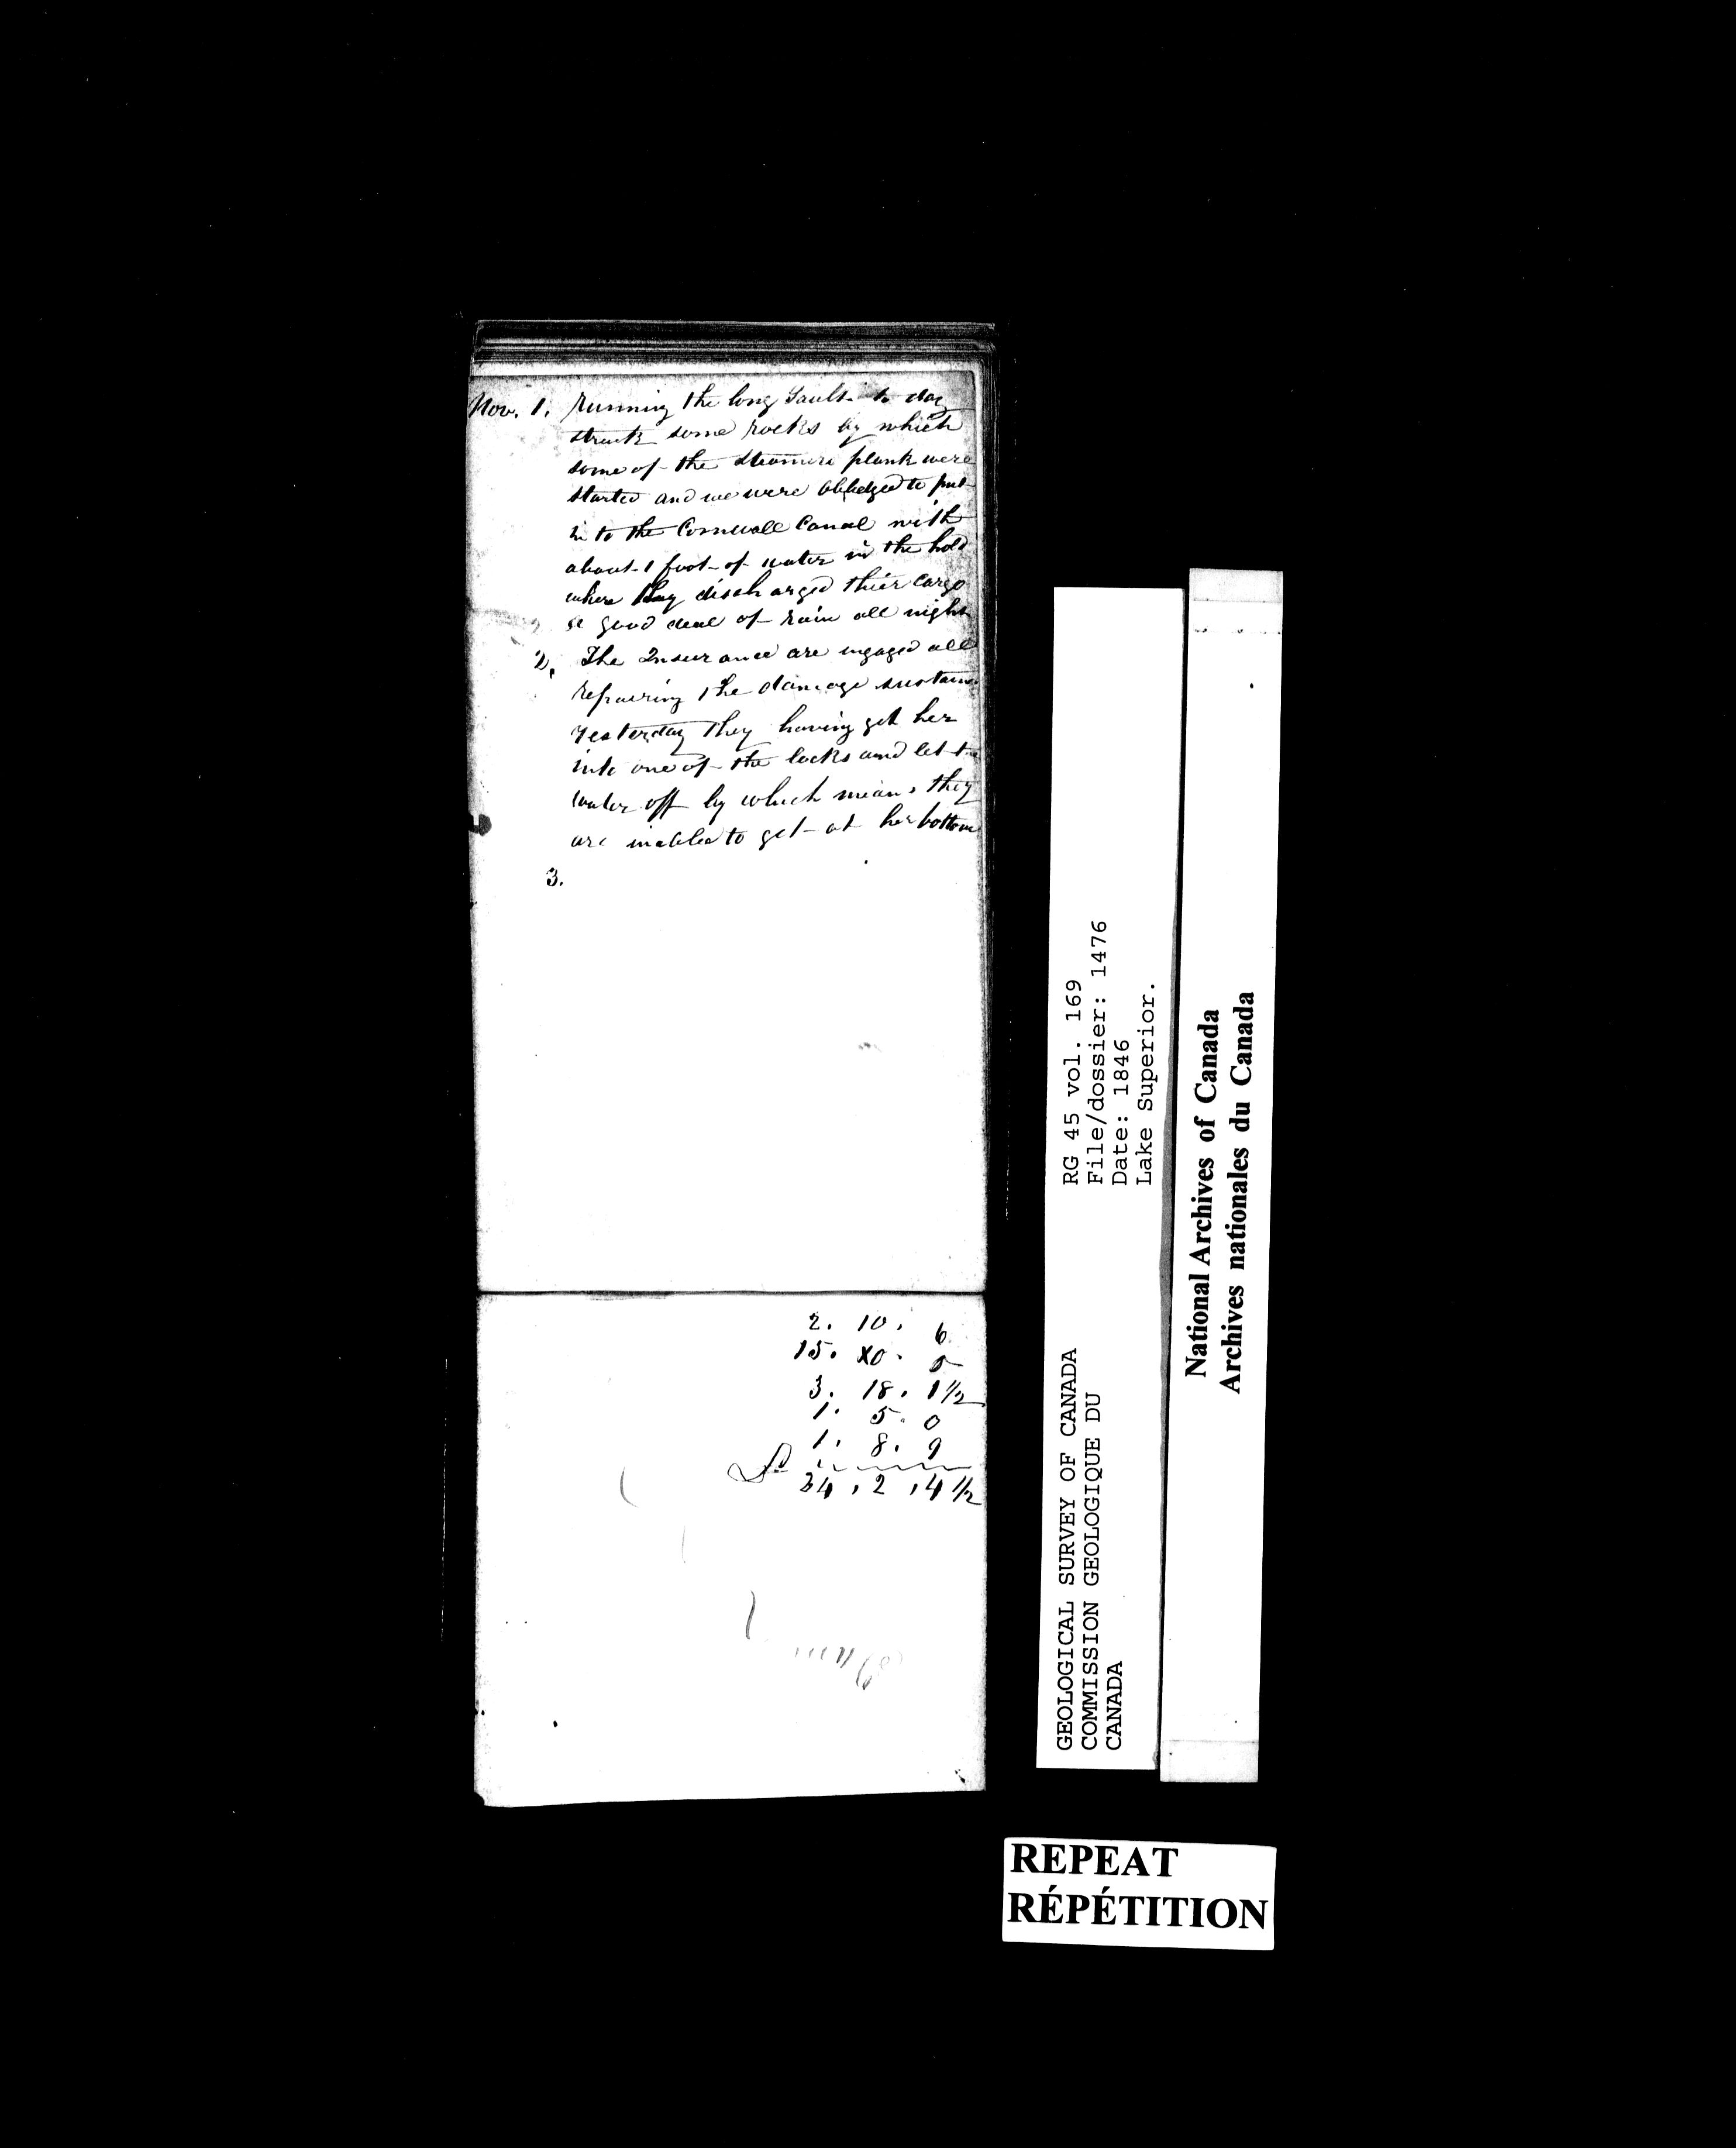 Nov. 1. Running the long Sault to day
struck some rocks by which
some of the steamers plank were
started and we were obledged to put
in to the Cornwall Canal with
about 1 foot of water in the hold
where they discharged thier cargo
a good deal of rain all night
2. The Insurance are ingaged all
repairing the damage sustain
yesterday they having got her
into one of the locks and let the
water off by which means they
are inabled to get at her bottom
3.
2. 10. 6
15. X0. 0
3. 18. 1 1/2
1. 5. 0
1. 8. 9
24, 2, 4 1/2
RG 45 vol. 169
File/dossier: 1476
Date: 1846
Lake Superior.
GEOLOGICAL SURVEY OF CANADA
COMMISSION GEOLOGIQUE DU
CANADA
National Archives of Canada
Archives nationales du Canada
REPEAT
RÉPÉTITION